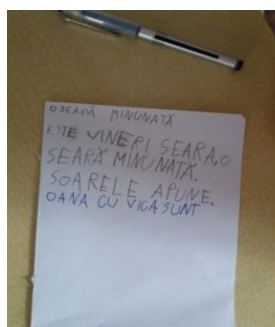 O SEARĂ MINUNATĂ
ESTE VINERI SEARA, O
SEARĂ MINUNATĂ.
SOARELE APUNE.
OANA CU VICA SUNT